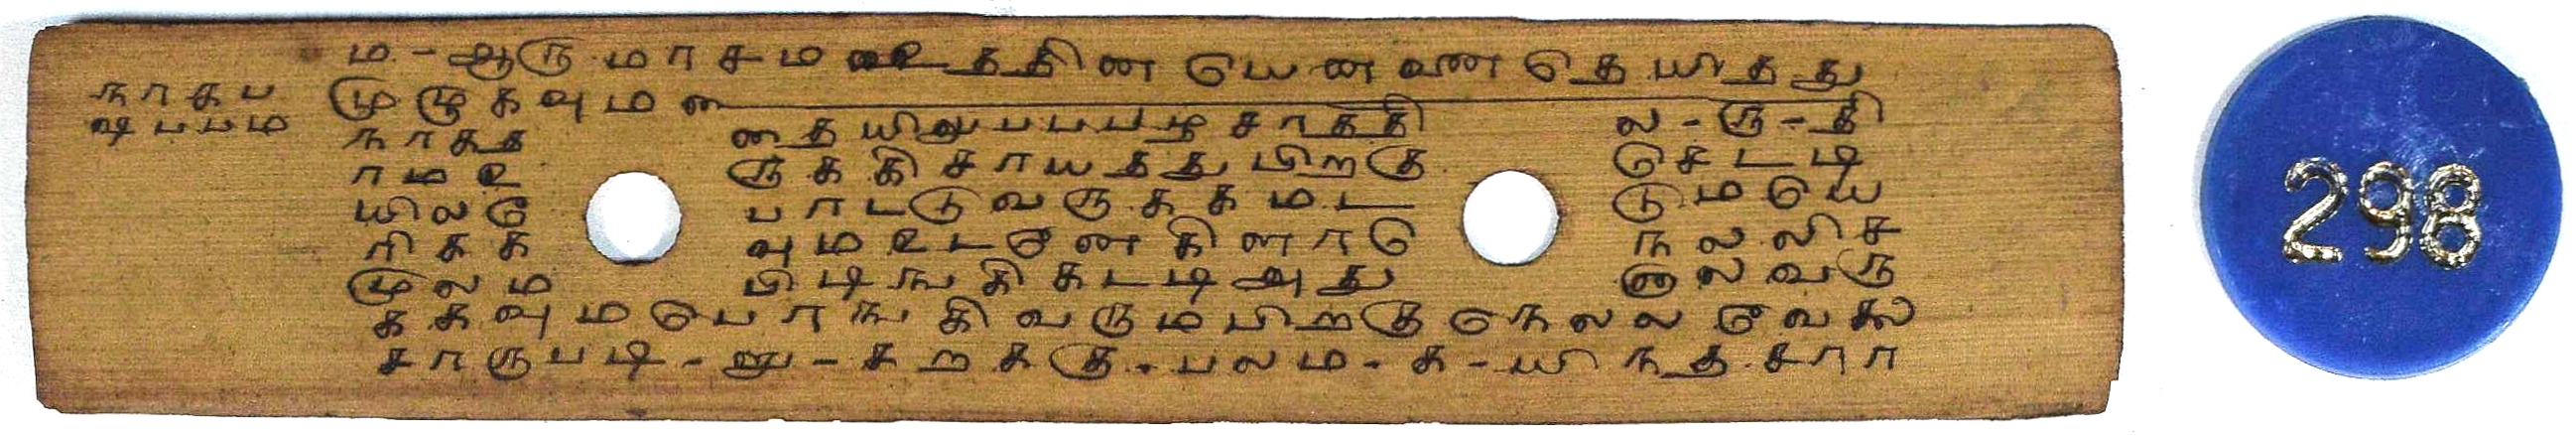 ம - ஆரு மாசம உததின யெணண தெயிதது
நாகப முழுகவும
ஷபபம நாகத தையிலுபபபழசாததி ல - ரு - தி
ரமஉ ருககிசாயதது பிறகு செடடி
யிலவே பாடடுவருககமட டுமயெ
ரிகக வுமஉடனேகிளாெ நலலிச
முலம பிடிஙகிகடடிஅது னுலவரு
ககவுமபொஙகிவருமபிறகு நெலலவேக
சாருபடி - னு - சறககு . பலம . க - யிநத சார
298